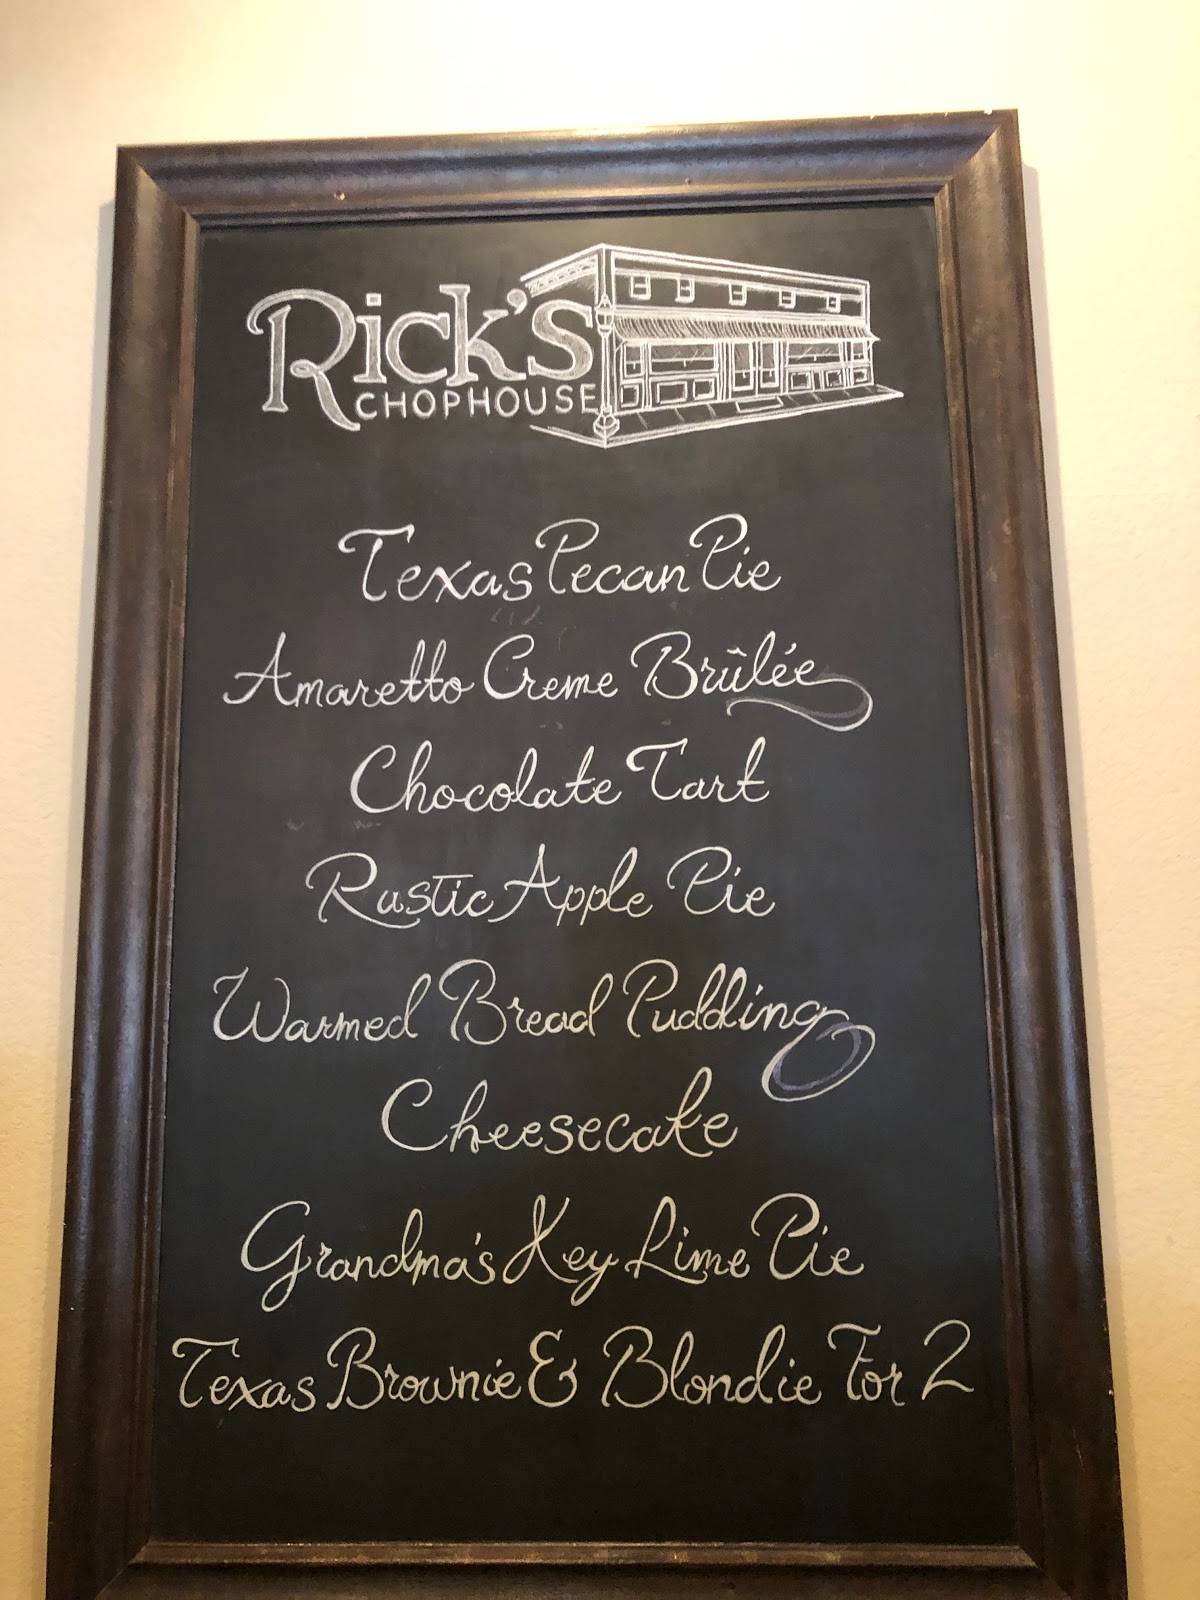 Rick's
CHOPHOUSE
Texas Pecan Pie
Amaretto Creme Brûlée
Chocolate Tart
Rustic Apple Pie
Warmed Bread Pudding
Cheesecake
Grandma's Key Lime Pie
Texas Brownie & Blondie For 2